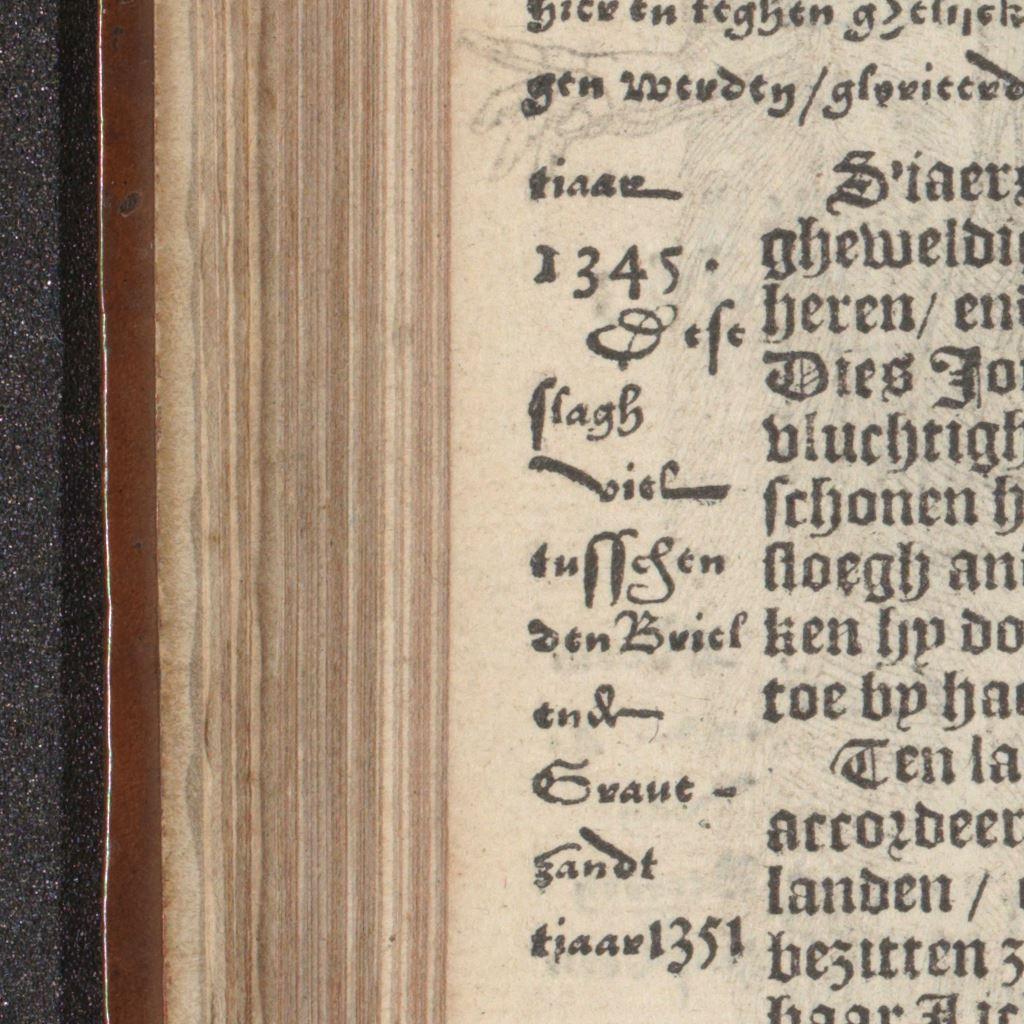 hier en teghen ghelijck
gen werden / gheviteerd
tiaar
1345.
Dese
slagh
viel
tusschen
den Briel
ende
Grave-
zandt
tjaar 1351
S'iaers
gheweldi
heren/ en
Dies Jo
vluchtigh
schonen h
sloegh an
ken hy do
toe by ha
Ten la
accordeer
landen /
bezitten z
haar